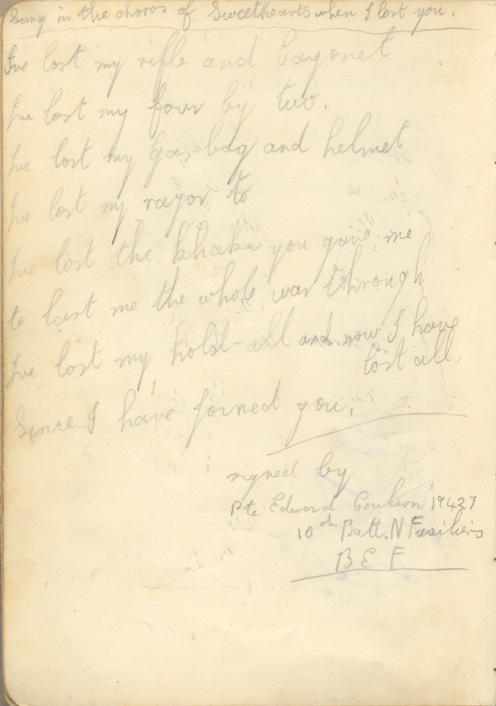 Sung in the choros of Sweethearts when I lost you.
I've lost my rifle and bayonet
I've lost my four by two.
I've lost my Gas bag and helmet
I've lost my razor to
I've lost the khaki you gave me
to last me the whole war through
I've lost my hold-all and now I have
lost all,
Since I have joined you.
signed by
Pte Edward Coulson 19427
10th Batt. N Fusiliers
B E F